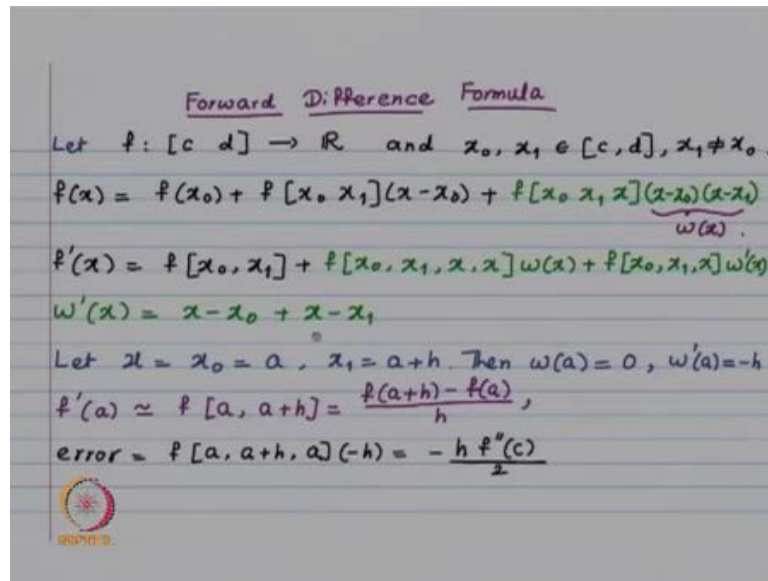 Forward Difference Formula
Let f : [c d] → ℝ and x₀, x₁ ∈ [c, d], x₁ ≠ x₀.
f(x) = f(x₀) + f[x₀ x₁](x-x₀) + f[x₀ x₁ x](x-x₀)(x-x₁)
w(x).
f'(x) = f[x₀, x₁] + f[x₀, x₁, x, x] w(x) + f[x₀, x₁, x] w'(x)
w'(x) = x - x₀ + x - x₁
Let x = x₀ = a, x₁ = a+h. Then w(a) = 0, w'(a) = -h
f'(a) ≃ f[a, a+h] = (f(a+h) - f(a))/h,
error = f[a, a+h, a](-h) = - h f''(c)/2